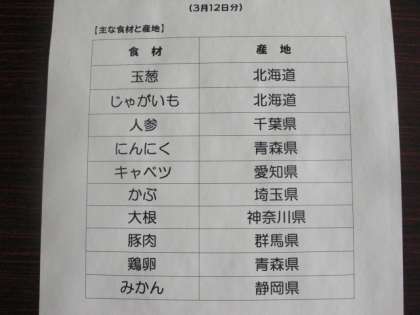 (3月12日分)
【主な食材と産地】
食 材 産 地
玉葱 北海道
じゃがいも 北海道
人参 千葉県
にんにく 青森県
キャベツ 愛知県
かぶ 埼玉県
大根 神奈川県
豚肉 群馬県
鶏卵 青森県
みかん 静岡県